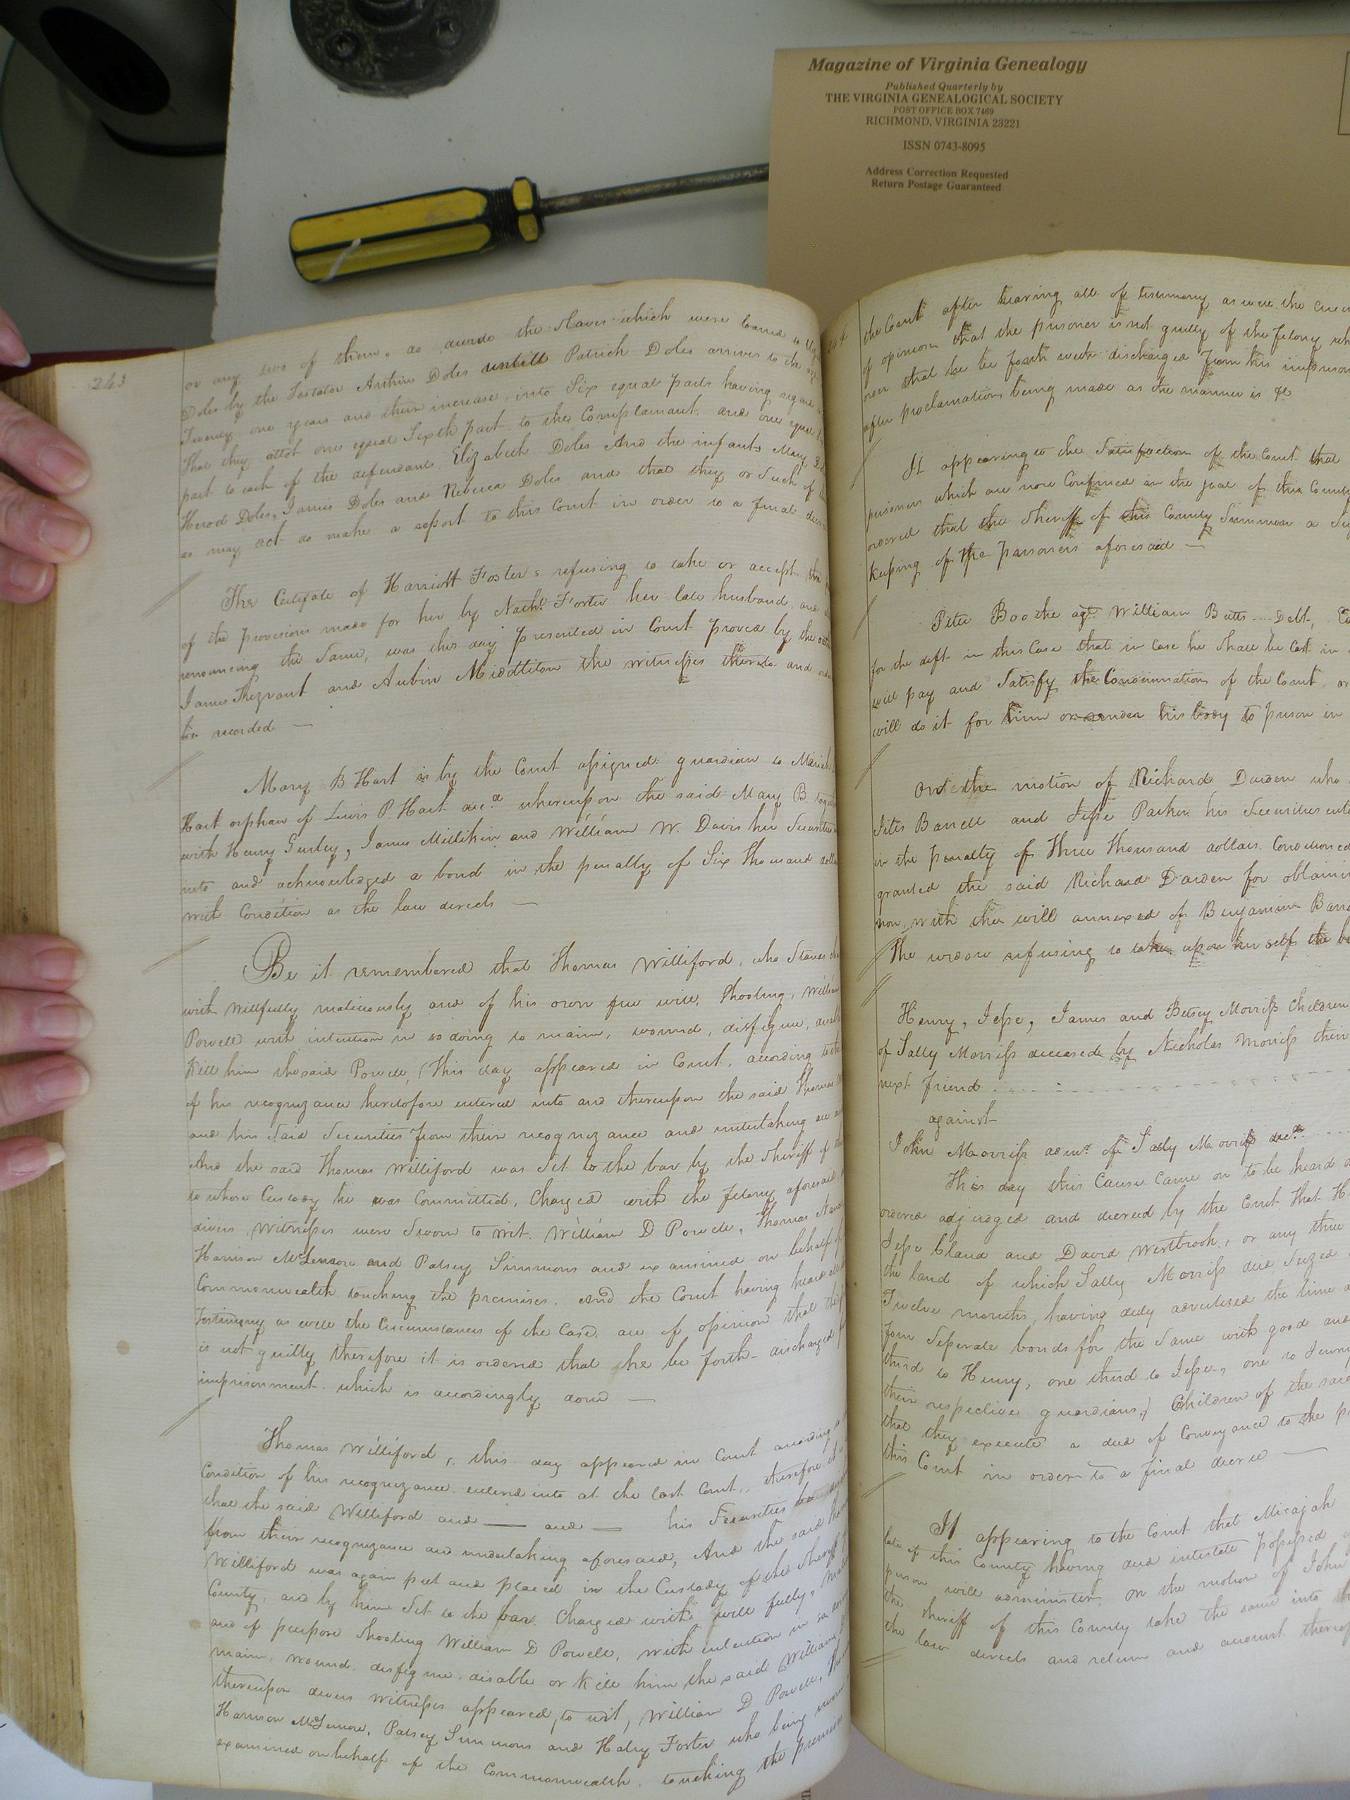 Magazine of Virginia Genealogy
Published Quarterly by
THE VIRGINIA GENEALOGICAL SOCIETY
POST OFFICE BOX 7469
RICHMOND, VIRGINIA 23221
ISSN 0743-8095
Address Correction Requested
Return Postage Guaranteed
263
or any two of them, do divide the slaves which were loaned to
Doles by the Testator Arthur Doles untill Patrick Doles arrives to the age
Twenty one years and their increase, into Six equal parts having regard
That they allot one equal Sixth part to the Complainant, and one equal
part to each of the defendants, Elizabeth Doles And the infants Mary
Herod Doles, James Doles and Rebecca Doles and that they or Such of
as may act do make a report to this Court in order to a final decree
The Certificate of Harriott Foster's refusing to take or accept the
of the provision made for her by Nathl Foster her late husband, and
renouncing the Same, was this day presented in Court proved by the
James Trezvant and Aubin Middleton the witnesses thereto and
be recorded —
Mary B Hart is by the Court assigned guardian to
Hart orphan of Lewis P. Hart decd whereupon the said Mary B
with Henry Gurley, James Millikin and William W. Davis her Securities
into and acknowledged a bond in the penalty of Six Thousand dollars
with Condition as the law directs —
Be it remembered that Thomas Williford, who Stands
with Willfully maliciously and of his own free will, Shooting, William
Powell with intention in so doing to maim, wound, disfigure,
Kill him the said Powell, This day appeared in Court, according to the
of his recognizance heretofore entered into and thereupon the said Thomas
and his Said Securities from their recognizance and undertaking are
And the said Thomas Williford was Set to the bar by the Sheriff of
to whose Custody he was Committed, Charged with the felony aforesaid
divers Witnesses were Sworn to wit. William D Powell, Thomas
Harrison McLemore and Patsey Simmons and examined on behalf of
Commonwealth touching the premises. And the Court having heard
Testimony as well the Circumstances of the Case, are of opinion that
is not guilty therefore it is ordered that he be forth- discharged
imprisonment. which is accordingly done —
Thomas Williford, this day appeared in Court according to
Condition of his recognizance entered into at the last Court, therefore it
that the said Williford and — and — his Securities be
from their recognizance and undertaking aforesaid, And the said
Williford was again put and placed in the Custody of the Sheriff of
County, and by him Set to the bar. Charged with willfully,
and of purpose Shooting William D Powell, with intention in so
maim, wound, disfigure, disable or Kill him the said William
thereupon divers Witnesses appeared, to wit, William D Powell,
Harrison McLemore, Patsey Simmons and Haley Foster who being
examined on behalf of the Commonwealth, touching the premises
264
the Court after hearing all of testimony as well the
of opinion that the prisoner is not guilty of the felony
over that he be forth with discharged from this
after proclamation being made as the manner is &c
It appearing to the Satisfaction of the Court that
prisoners which are now Confined in the jail of this County
ordered that the Sheriff of this County Summon a
Keeping of the prisoners aforesaid —
Peter Boothe agt William Butts — Debt,
for the deft in this Case that in case he Shall be Cast in
will pay and Satisfy the Condemnation of the Court, or
will do it for him or render his body to prison in
On the motion of Richard Darden who
Titus Barrett and Jesse Parker his Securities
in the penalty of Three Thousand dollars, Conditioned
granted the said Richard Darden for
with the will annexed of Benjamin
The widow refusing to take upon her self the
Henry, Jesse, James and Betsey Morriss Children
of Sally Morriss deceased by Nicholas Morriss their
next friend
against
John Morriss admr of Sally Morriss decd
This day this Cause Came on to be heard
ordered adjudged and decreed by the Court That
Jesse Bland and David Westbrook, or any three
the land of which Sally Morriss died Seized
Twelve months, having duly advertised the time
four Seperate bonds for the Same with good and
third to Henry, one third to Jesse, one to
their respective guardians,) Children of the said
that they execute a deed of Conveyance to the
this Court in order to a final decree —
It appearing to the Court that Micajah
late of this County having died intestate possessed
person will administer. On the motion of John
the Sheriff of this County take the same into
the law directs and return and account thereof